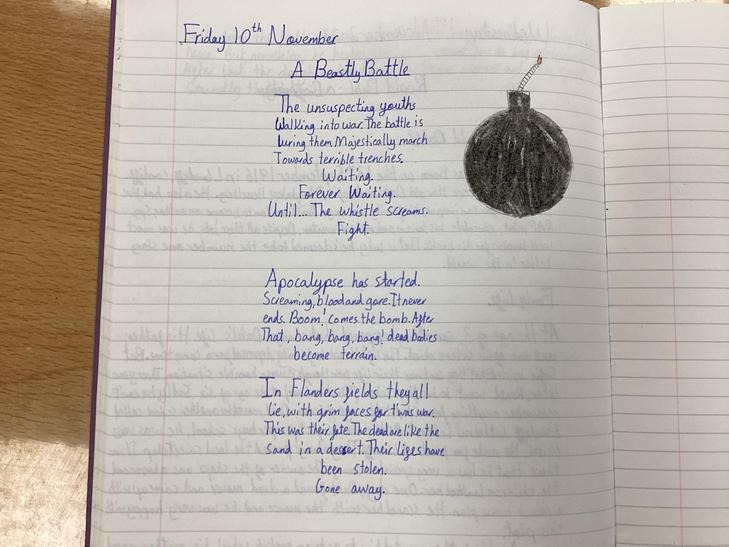 Friday 10th November
A Beastly Battle
The unsuspecting youths
Walking into war. The battle is
luring them Majestically march
Towards terrible trenches.
Waiting.
Forever Waiting.
Until... The whistle screams.
Fight.
Apocalypse has started.
Screaming, blood and gore. It never
ends. Boom! Comes the bomb. After
That, bang, bang, bang! dead bodies
become terrain.
In Flanders fields they all
lie, with grim faces for t'was war.
This was their fate. The dead are like the
sand in a dessert. Their lives have
been stolen.
Gone away.